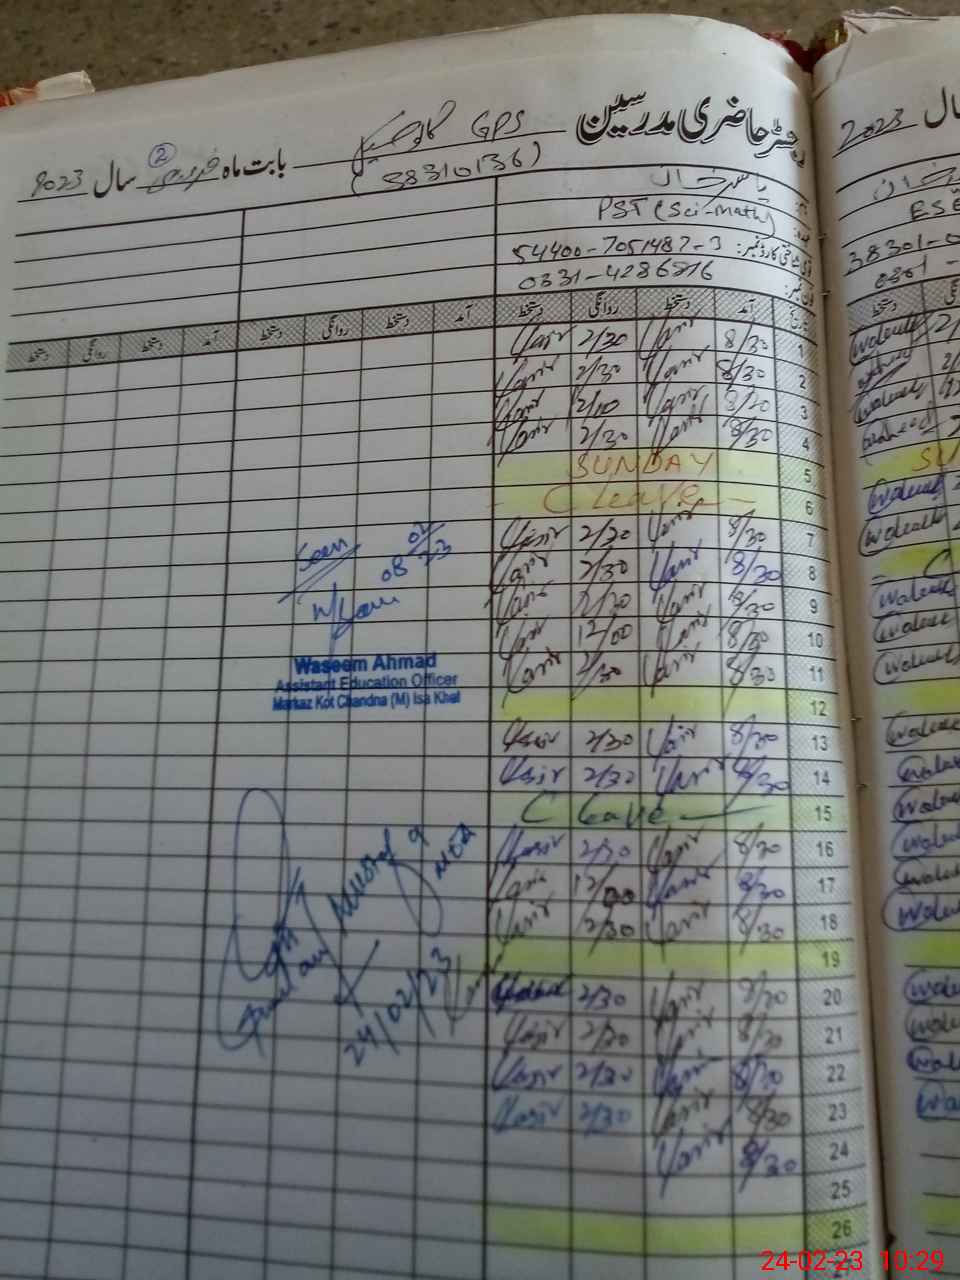 رجسٹر حاضری مدرسین GPS بابت ماہ فروری 2 سال 2023
(38310136)
یاسر خان
PST (Sci-Math)
قومی شناختی کارڈ نمبر: 54400-7051487-3
فون نمبر: 0331-4286816
تاریخ آمد دستخط روانگی دستخط آمد دستخط روانگی دستخط آمد دستخط روانگی دستخط
1 8/30 Yasir 2/30 Yasir
2 8/30 Yasir 2/30 Yasir
3 8/30 Yasir 12/10 Yasir
4 8/30 Yasir 2/30 Yasir
5 SUNDAY
6 C leave
7 8/30 Yasir 2/30 Yasir
8 8/30 Yasir 2/30 Yasir
9 8/30 Yasir 2/30 Yasir
10 8/30 Yasir 12/00 Yasir
11 8/30 Yasir 2/30 Yasir
12
13 8/30 Yasir 2/30 Yasir
14 8/30 Yasir 2/30 Yasir
15 C leave
16 8/30 Yasir 2/30 Yasir
17 8/30 Yasir 12/00 Yasir
18 8/30 Yasir 2/30 Yasir
19
20 8/30 Yasir 2/30
21 8/30 Yasir 2/30 Yasir
22 8/30 Yasir 2/30 Yasir
23 8/30 Yasir 2/30 Yasir
24 8/30 Yasir
25
26
Seen
08 02 23
Waseem Ahmad
Assistant Education Officer
Markaz Kot Chandna (M) Isa Khel
24/02/23
سال 2023
ESE
38301-0
0301-
دستخط
24-02-23 10:29